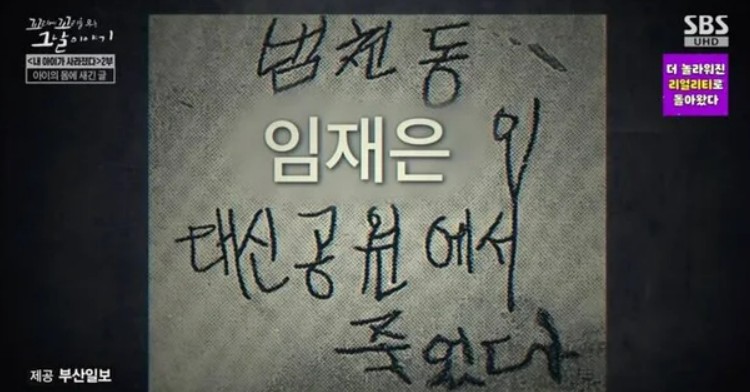 꼬리에 꼬리를 무는
그날 이야기
<내 아이가 사라졌다>2부
아이의 몸에 새긴 글
SBS
UHD
더 놀라워진
리얼리티로
돌아왔다
범천동
임재은이
대신공원에서
죽었다
제공 부산일보